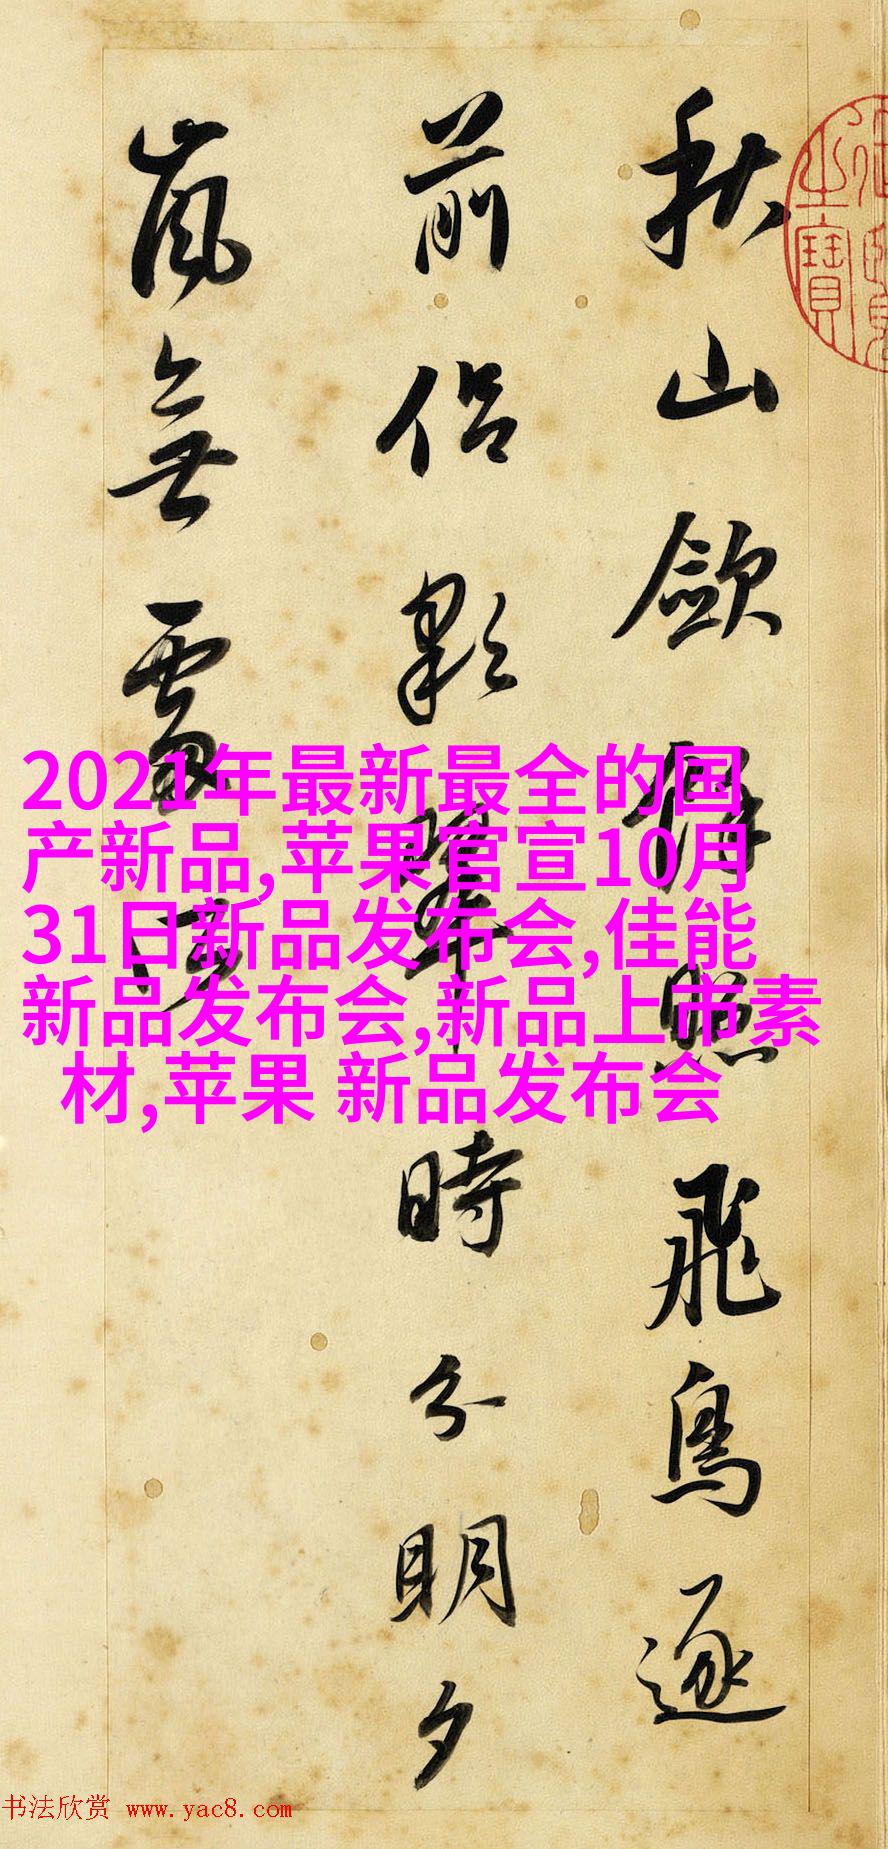 秋山歛餘照飛鳥逐
前侣彩翠時分明夕
嵐無處所
2021年最新最全的国
产新品,苹果官宣10月
31日新品发布会,佳能
新品发布会,新品上市素
材,苹果 新品发布会
之寶
书法欣赏 www.yac8.com